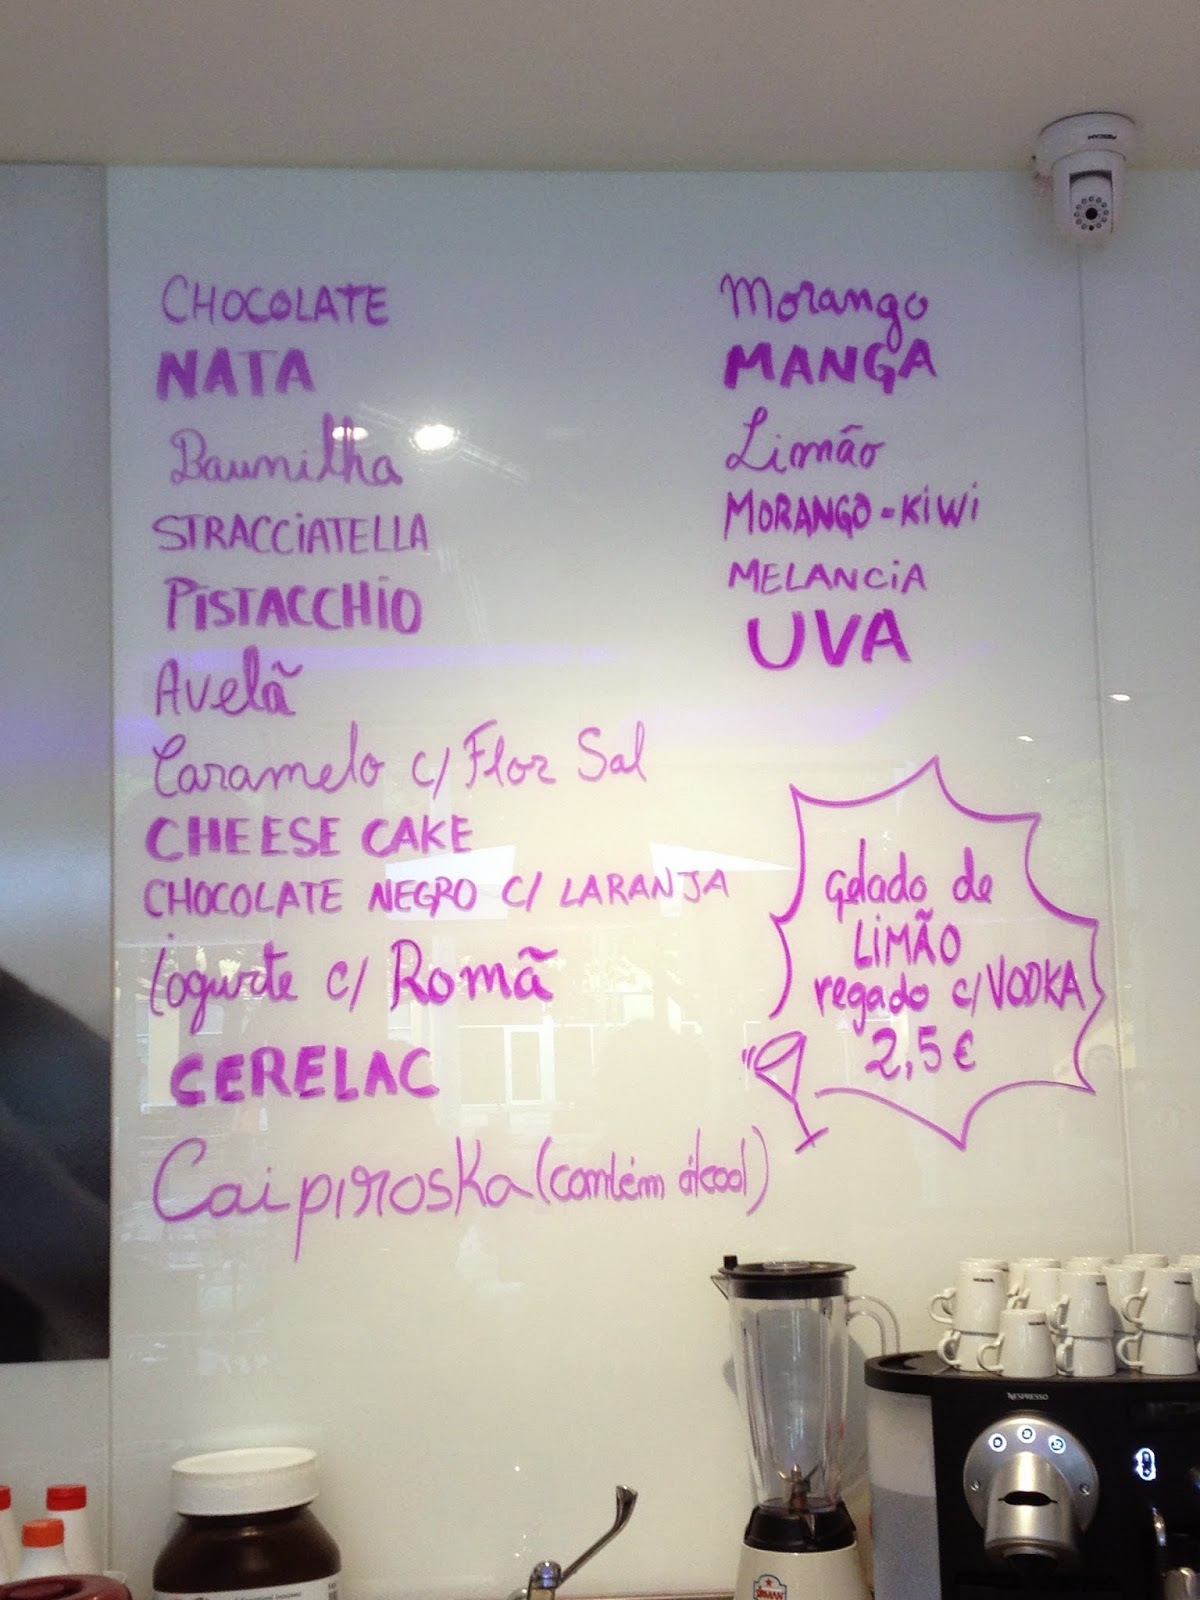 CHOCOLATE
NATA
Baunilha
STRACCIATELLA
PISTACCHIO
Avelã
Caramelo c/ Flor Sal
CHEESE CAKE
CHOCOLATE NEGRO C/ LARANJA
Iogurte c/ Romã
CERELAC
Caipiroska (contém álcool)
Morango
MANGA
Limão
MORANGO-KIWI
MELANCIA
UVA
Gelado de
LIMÃO
regado c/ VODKA
2,5 €
NESPRESSO